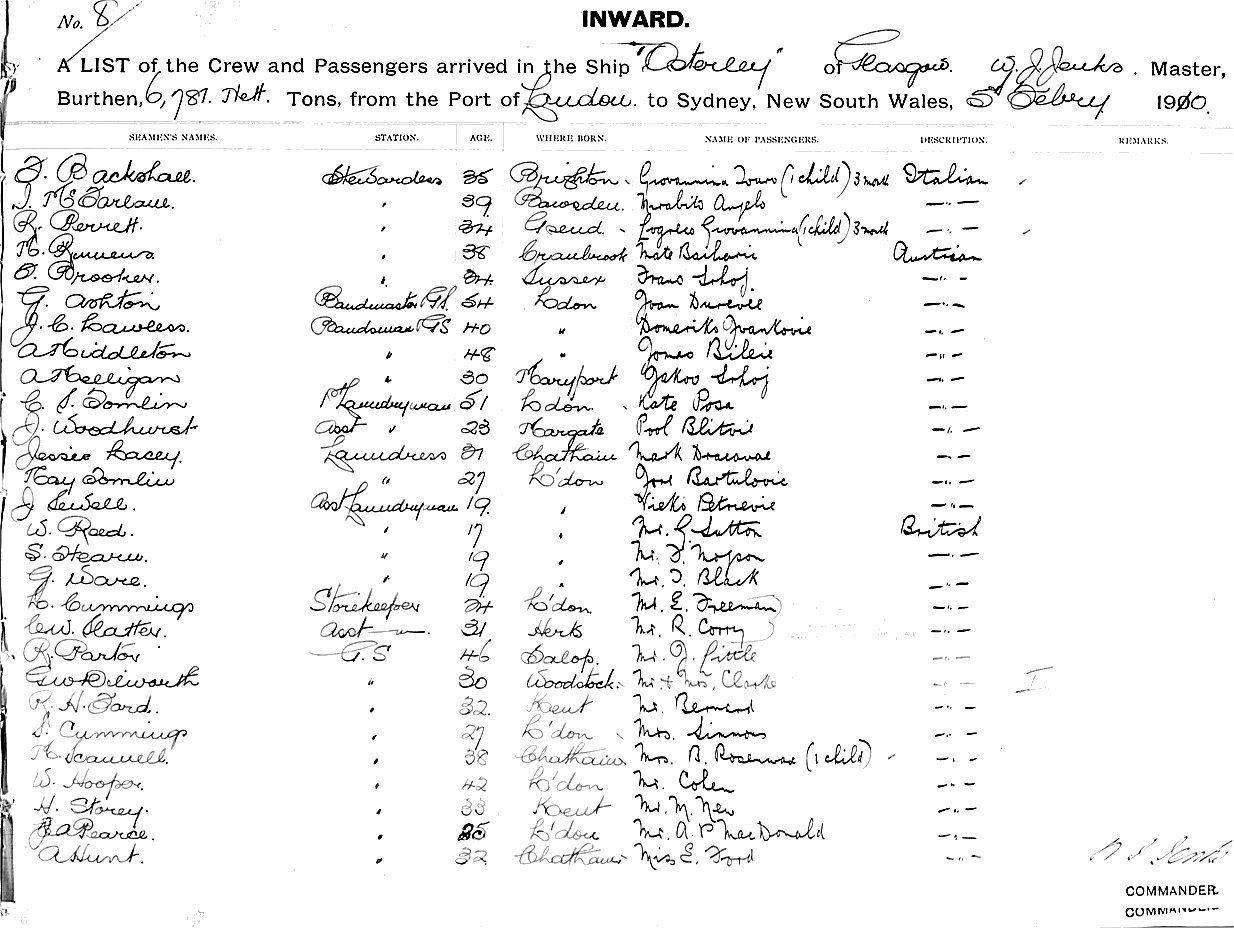 No. 8
INWARD.
A LIST of the Crew and Passengers arrived in the Ship "Osterley" of Glasgow. W. J. Jenks. Master,
Burthen, 6,781. Nett. Tons, from the Port of London. to Sydney, New South Wales, 5 Febry 1910.
SEAMEN'S NAMES. STATION. AGE. WHERE BORN. NAME OF PASSENGERS. DESCRIPTION. REMARKS.
Backshall. Stewardess 35 Brighton Giovannina (1 child) 3 month Italian
J. McFarlane. " 39 Angelo —"—
R. Perrett. " 34 Giovannina (1 child) 3 month —"—
" 38 Cranbrook Mate Austrian
Brooker. " 34 Sussex Frano —"—
G. Ashton Bandmaster GS. 54 L'don —"—
J. C. Lawless. Bandsman GS 40 " —"—
A Middleton " 48 " —"—
A Melligan " 30 Maryport Jakov —"—
C. S. Tomlin 1st Laundryman 51 L'don Kate Posa —"—
J. Woodhurst Asst " 23 Margate —"—
Jessie Lacey. Laundress 31 Chatham —"—
May Tomlin " 27 L'don Jose Bartulovic —"—
J Sewell. Asst Laundryman 19. " Petrevic —"—
W. Reed. 17 " Mr. G. Sutton British
S. Hearn. " 19 " Mr. —"—
G. Ware. " 19 " Mr. Black —"—
Cummings Storekeeper 24 L'don Mr. E. Freeman —"—
C W. Slatter. Asst —"—. 31 Herts Mr. R. Corry —"—
R. Parton G.S 46 Salop. Mr. J. Little —"—
G W Dilworth " 30 Woodstock. Mr. & Mrs. Clarke —"—
R. H. Fard. " 32. Kent Mr. Bernard —"—
S. Cummings " 27 L'don Mrs. Simmons —"—
M. Scannell. " 38 Chatham Mrs. B. (1 child) —"—
W. Hooper. " 42 L'don Mr. Cohen —"—
H. Storey. " 33 Kent Mr. M. New —"—
Pearce. " 25 L'don Mr. A. P MacDonald —"—
A Hunt. " 32 Chatham Miss E. Ford —"—
Jenks
COMMANDER.
COMMANDER.